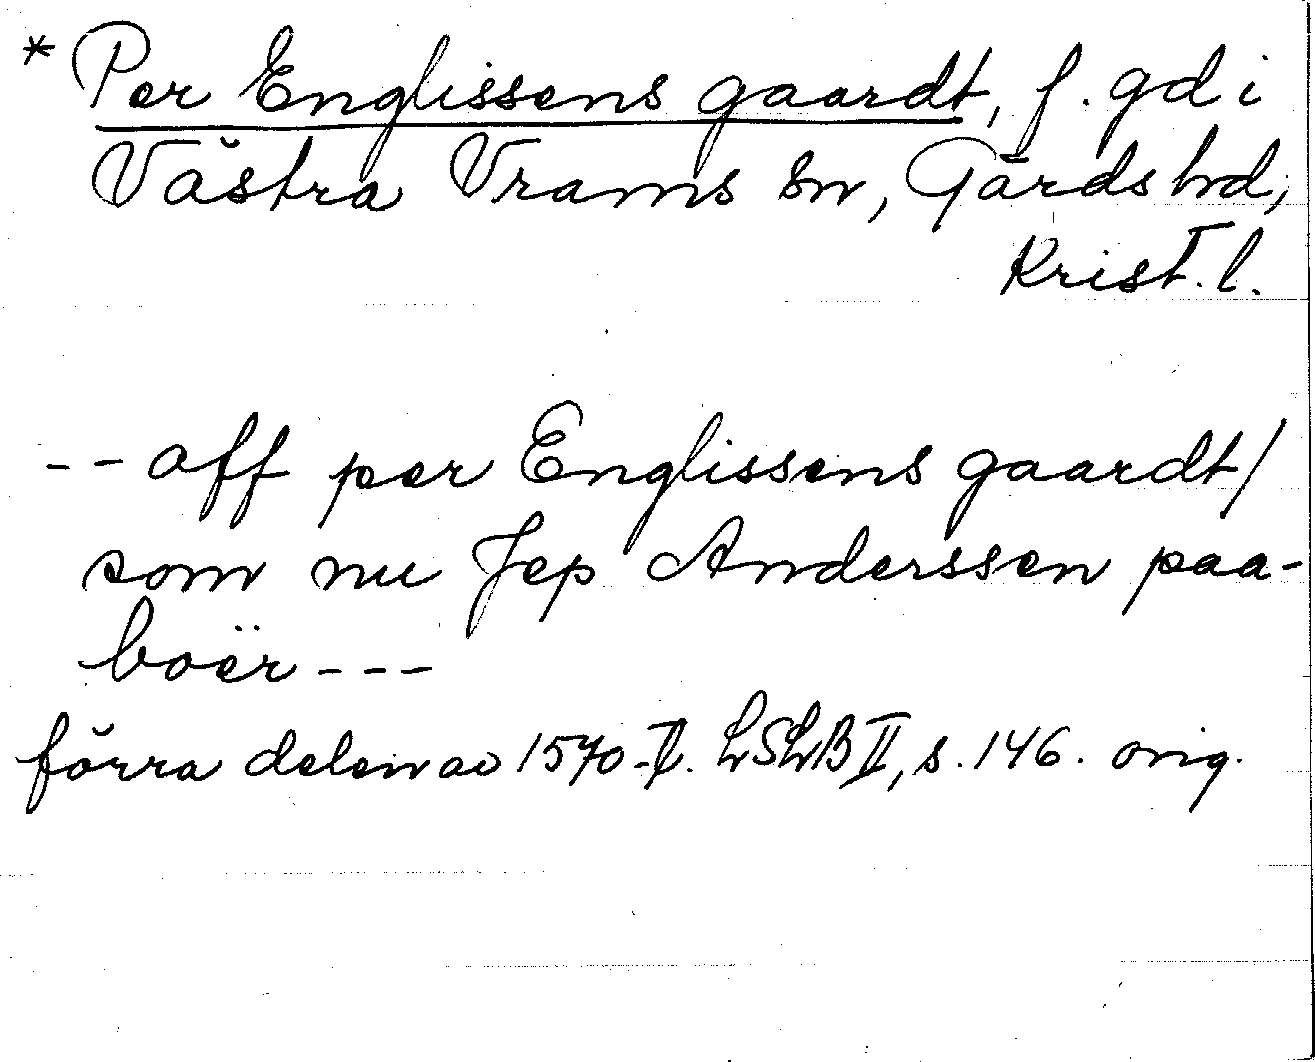 * Per Englissens gaardt, f. gd i
Västra Vrams sn, Gärds hd,
Krist. l.
-- aff per Englissens gaardt/
som nu Jep Anderssen paa-
boër ---
förra delen av 1570-t. LSLB II, s. 146. orig.